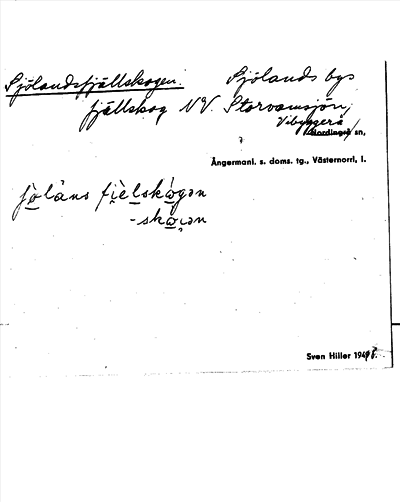 Sjölandsfjällskogen. Sjölands bys
fjällskog NV. Storvamsjön,
Vibyggerå
Nordingrå sn,
Ångermanl. s. doms. tg., Västernorrl. l.
fjällskogən
-skogən
Sven Hiller 1947.